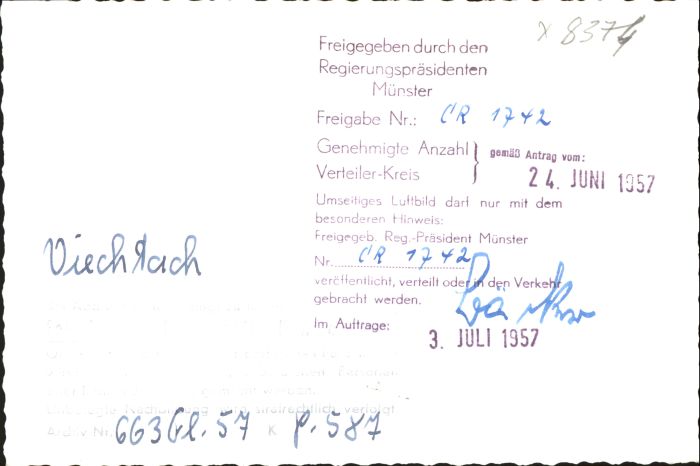 x 8374
Freigegeben durch den
Regierungspräsidenten
Münster
Freigabe Nr.: CR 1742
Genehmigte Anzahl } gemäß Antrag vom:
Verteiler-Kreis 24. JUNI 1957
Umseitiges Luftbild darf nur mit dem
besonderen Hinweis:
Freigegeb. Reg.-Präsident Münster
Nr. CR 1742
veröffentlicht, verteilt oder in den Verkehr
gebracht werden.
Im Auftrage:
3. JULI 1957
Viechtach
strafrechtlich verfolgt
Archiv Nr. 663Gl.57 K P.587